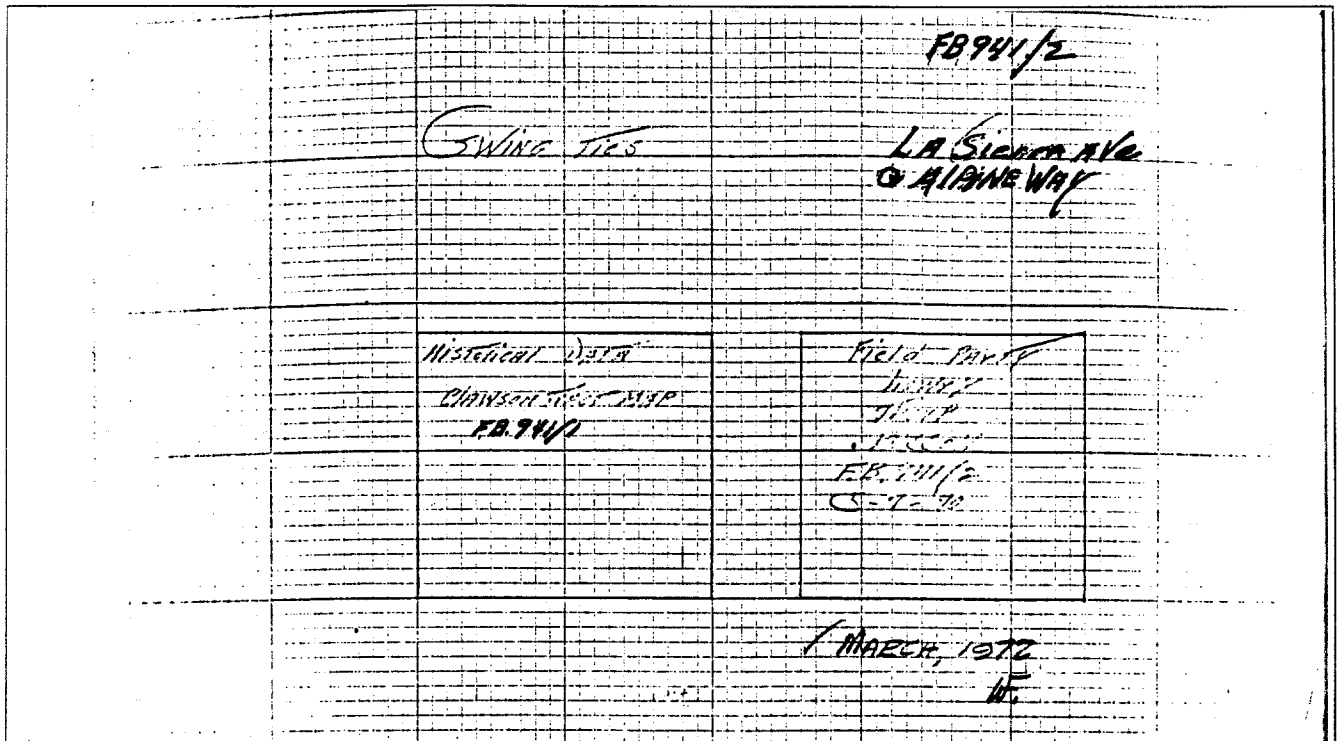 FB941/2
SWING TIES
LA Sierra AVe
@ AlPINE WAY
Historical Data
Clawson Tract Map
F.B. 941/1
Field Party
F.B. 941/2
5-7-70
1 MARCH, 1972